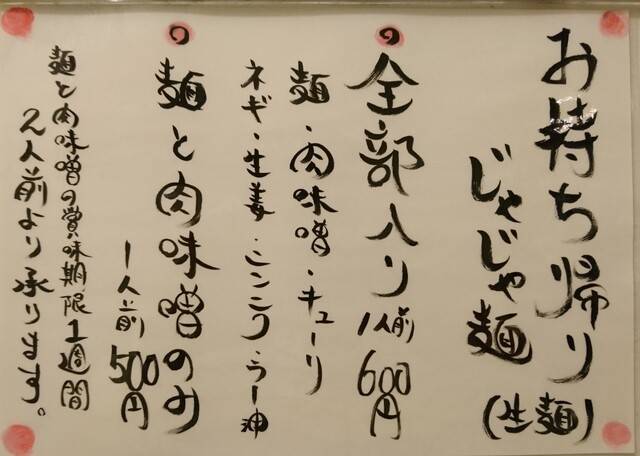 お持ち帰り
じゃじゃ麺
(生麺)
全部入り 1人前 600円
麺・肉味噌・キューリ
ネギ・生姜・ニンニク・ラー油
麺と肉味噌のみ
1人前 500円
麺と肉味噌の賞味期限1週間
2人前より承ります。